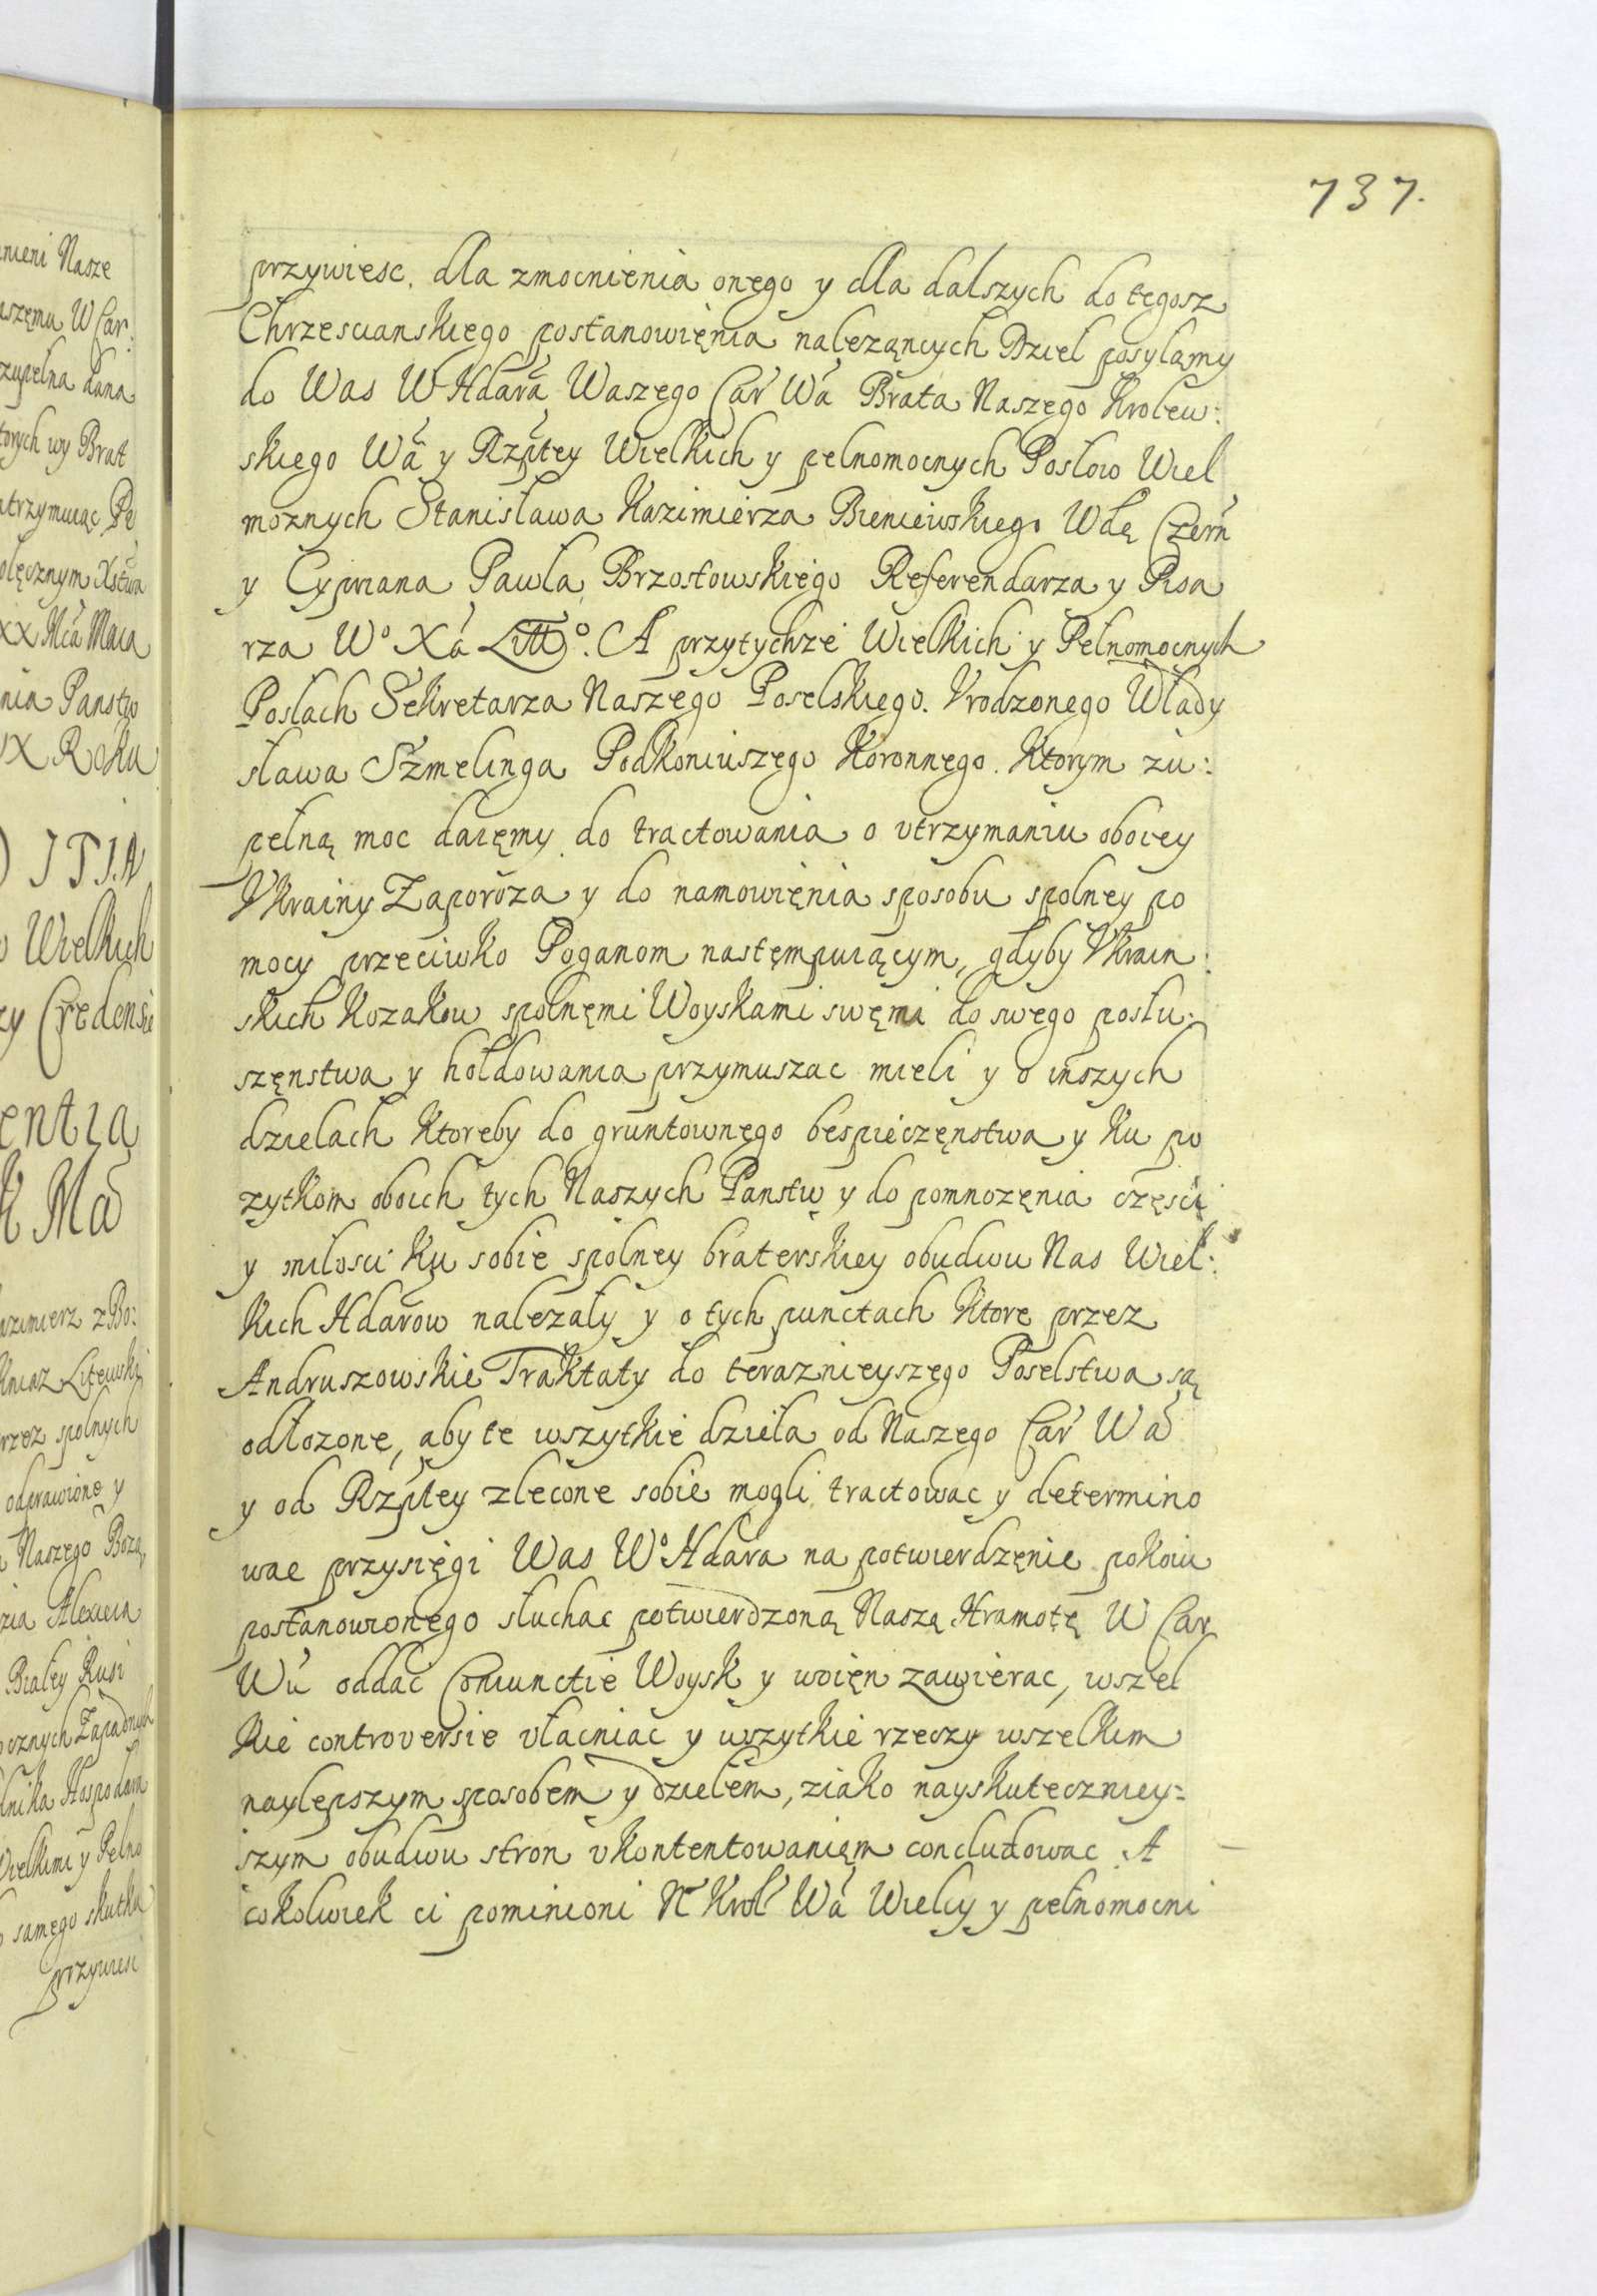 737.
przywiesc. dla zmocnienia onego y dla dalszych do tegosz
Chrzescianskiego postanowięnia nalezących Dziel posylamy
do Was W Hdara Waszego Car Wa Brata Naszego Krolew:
skiego Wa y Rzptey Wielkich y pelnomocnych Poslow Wiel
moznych Stanisława Kazimierza Bieniewskiego Wdę Czern
y Cypriana Pawla Brzostowskiego Referendarza y Pisa
rza Wº Xa Littº. A przytychze Wielkich y Pelnomocnych
Poslach Sekretarza Naszego Poselskiego. Vrodzonego Wlady
sława Szmelinga Podkoniuszego Koronnego. Ktorym zu:
pełną moc daięmy do tractowania o vtrzymaniu oboiey
Vkrainy Zaporoza y do namowięnia sposobu spolney po
mocy przeciwko Poganom nastęmpuiącym, gdyby Vkrain:
skich Kozakow spolnęmi Woyskami swęmi do swego posłu:
szęnstwa y hołdowania przymuszac mieli y o inszych
dzielach Ktoreby do gruntownego bespieczęnstwa y Ku po
zytkom oboich tych Naszych Panstw y do pomnozęnia częsci
y milosci Ku sobie spolney braterskiey obudwu Nas Wiel:
Kich Hdarow nalezały y o tych punctach Ktore przez
Andruszowskie Traktaty do teraznieyszego Poselstwa są
odłozone, aby te wszytkie dzieła od Naszego Car Wa
y od Rzptey zlecone sobie mogli tractowac y determino
wac przysięgi Was Wº Hdara na potwierdzęnie pokoiu
postanowionego słuchac potwierdzoną Naszą Hramotę W Car
Wu oddac Coniunctie Woysk y woięn zawierac, wszel
Kie controversie vłacniac y wszytkie rzeczy wszelkim
naylepszym sposobem y dzielem, ziako nayskuteczniey=
szym obudwu stron vkontentowanięm concludowac A
cokolwiek ci pominioni N Krol Wa Wielcy y pełnomocni